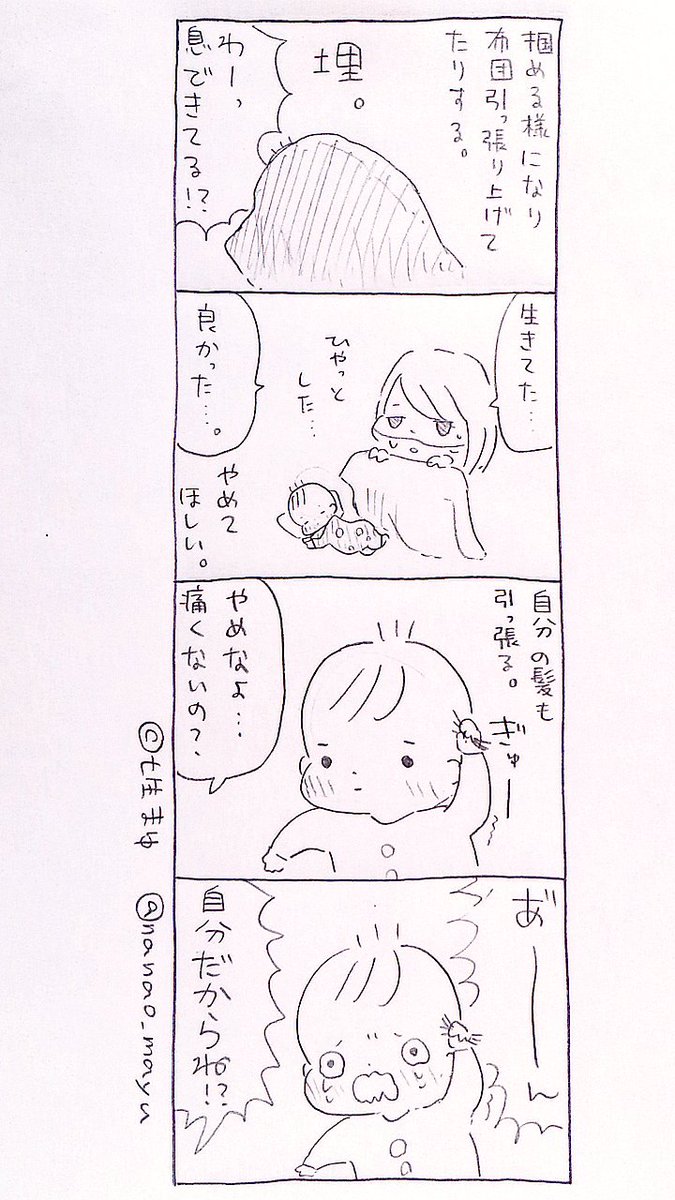 掴める様になり
布団引っ張り上げて
たりする。
埋。
わーっ、
息できてる!?
生きてた…
ひやっと
した…
良かった…。
やめて
ほしい。
自分の髪も
引っ張る。
ぎゅー
やめなよ…
痛くないの?
あ゛ーーん
自分だからね!?
©七生まゆ
@nanao_mayu